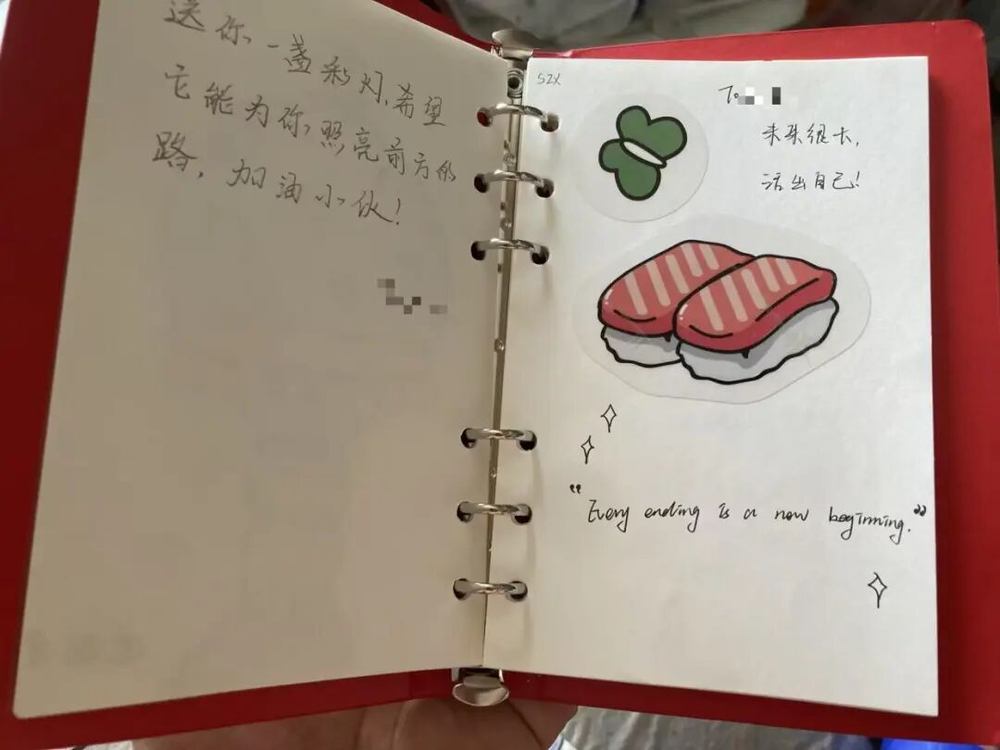 送你一盏彩灯,希望
它能为你照亮前方的
路,加油小伙!
SZX
To
未来很长,
活出自己!
"Every ending is a new beginning."